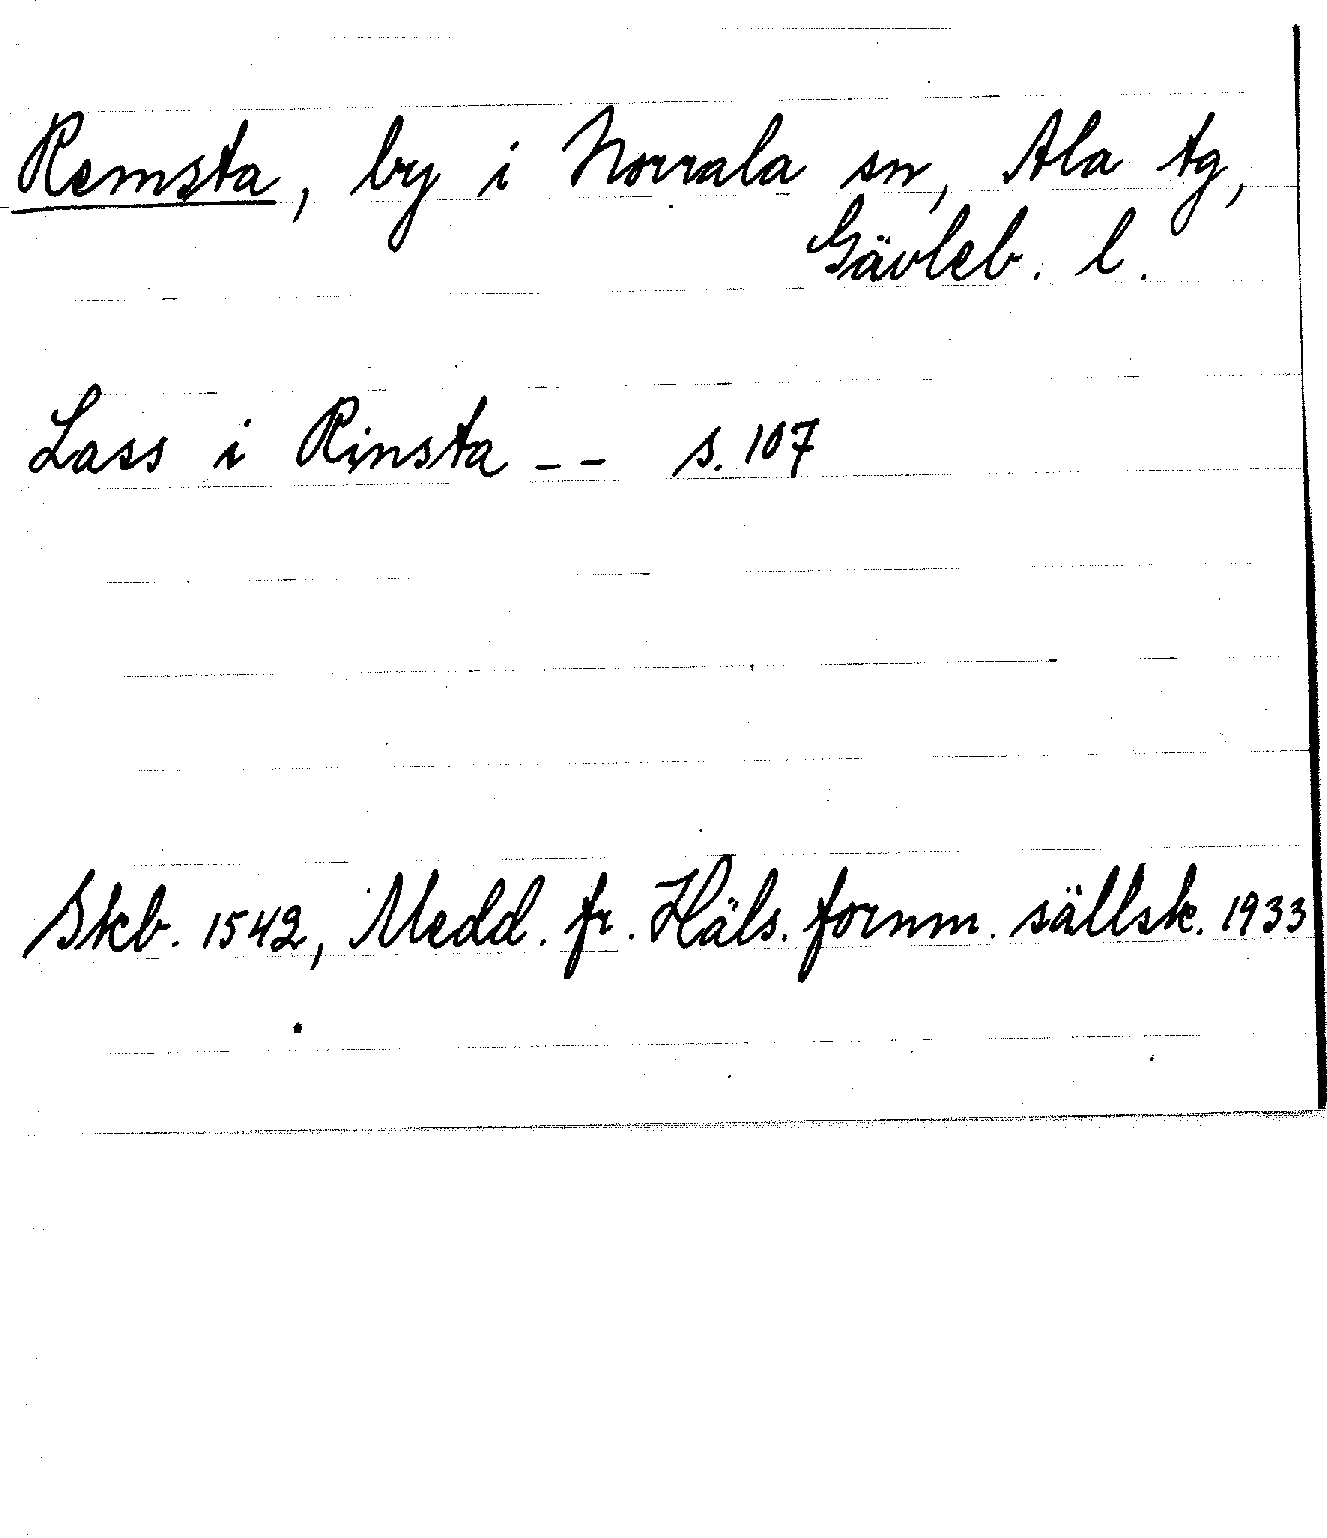 Remsta, by i Norrala sn, Ala tg,
Gävleb. l.
Lass i Rinsta -- s. 107
Skb. 1542, Medd. fr. Häls. fornm. sällsk. 1933